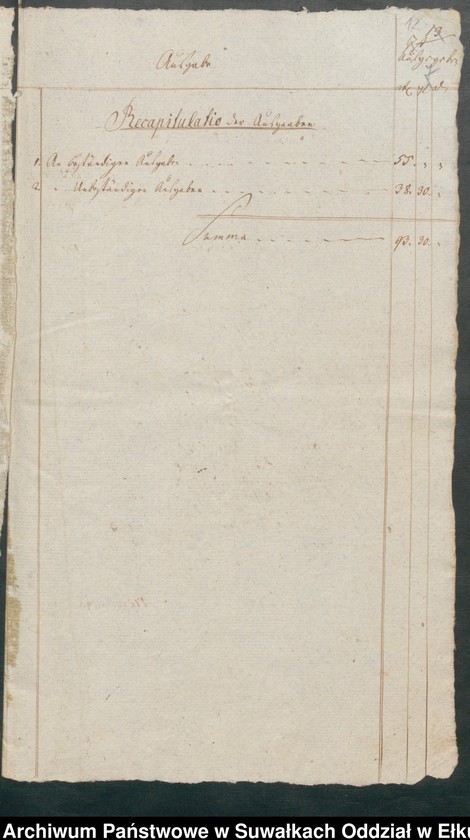 12
13
Ausgabe
Recapitulatio der Ausgaben
1. An beständigen Ausgabe 55. „ „
2. „ Unbeständigen Ausgaben 38. 30. „
Summa 93. 30. „
Archiwum Państwowe w Suwałkach Oddział w Ełku